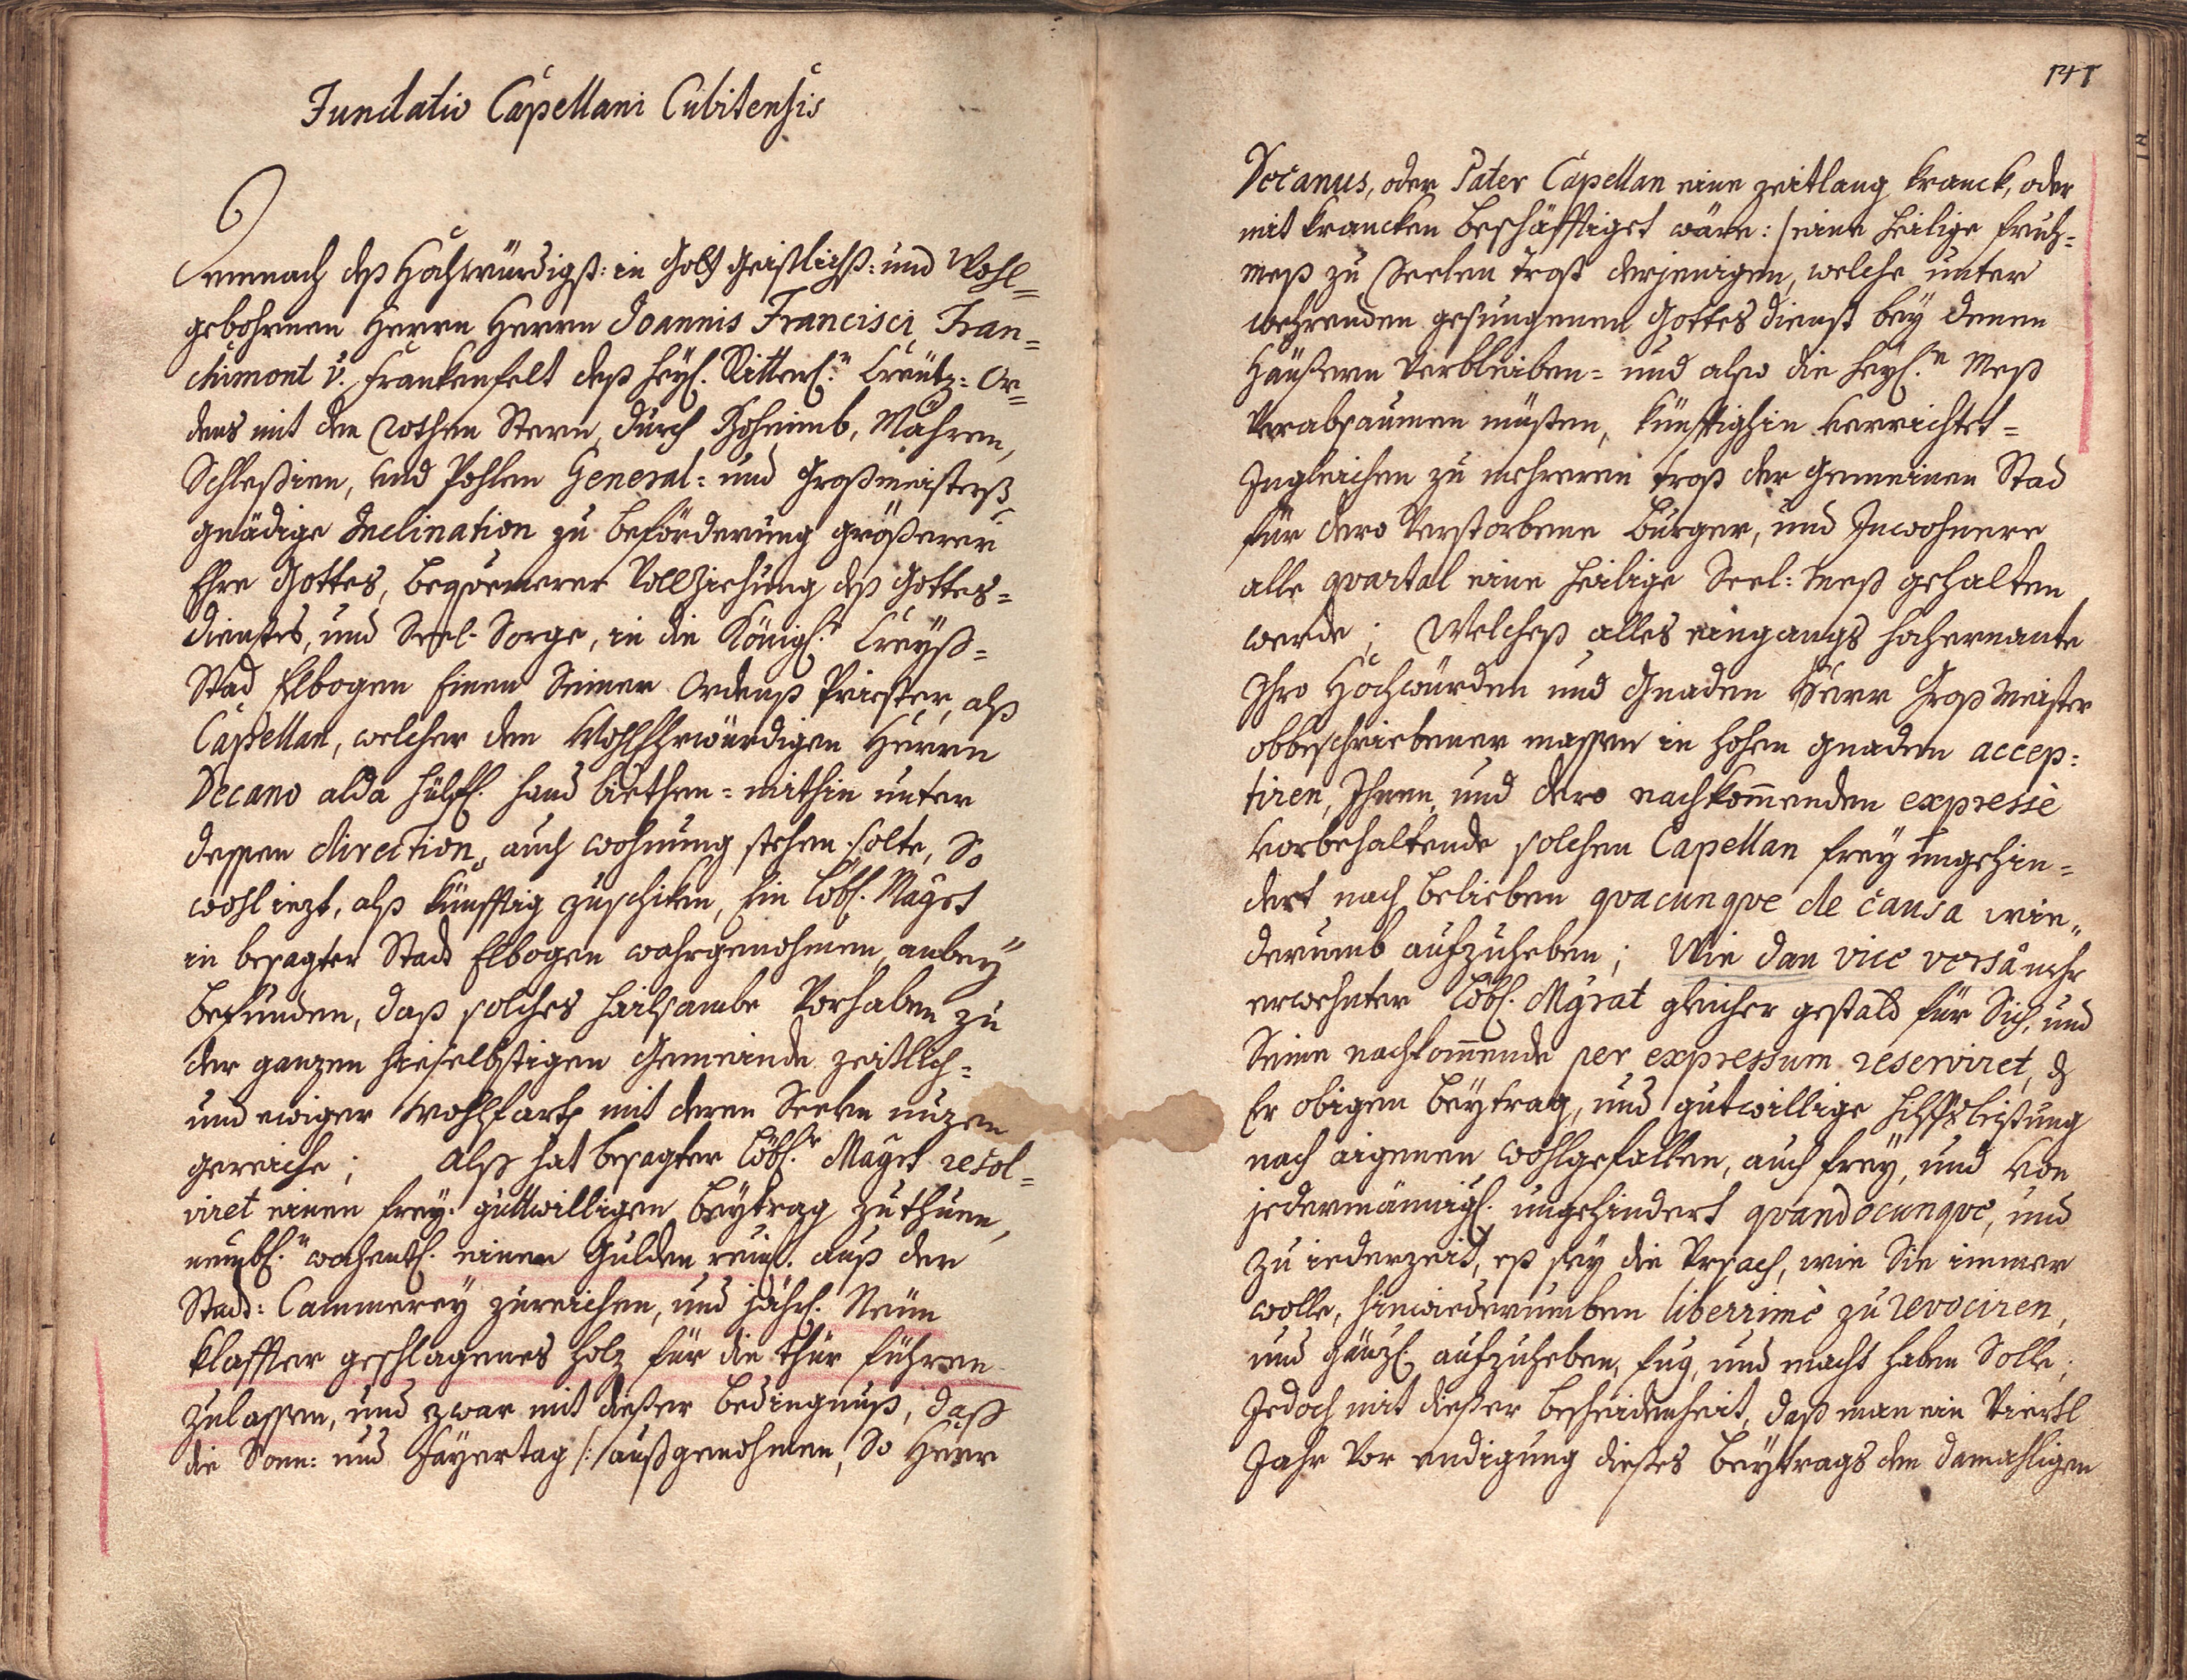 Fundatio Capellani Cubitensis
Demnach deß Hochwürdigst: in Gott Geistlichst: und Wohl=
gebohrnen Herrn Herrn Joannis Francisci Fran=
chimont v. Frankenfelt deß heyl. Ritterl.n Creütz=Or=
dens mit den Rothen Stern, durch Boheimb, Mähren,
Schlesien, und Pohlen General= und Großmeisterß
gnädige Inclination zu beförderung größerer
Ehre Gottes, beqvemerer Vollziehung deß Gottes=
dienstes, und Seel-Sorge, in die Königl.r Creyß=
Stad Elbogen Einen Seiner Ordenß Priester, alß
Capellan, welcher dem WohlEhrwürdigen Herrn
Decano alda hülfl. hand biethen= mithin unter
dessen direction, auch wohnung stehen solte, So
wohl iezt, alß künfftig zuschiken, Ein Löbl. Magrt
in besagter Stadt Elbogen wahrgenohmen, anbey
befunden, daß solches heilsambe Vorhaben zu
der ganzen hieselbstigen Gemeinde zeitlich=
und ewiger Wohlfarth mit deren Seelen nuzen
gereiche; Alß hat besagter Löbl.r Magrt resol=
viret einen frey-guttwilligen Beytrag zuthuen,
nembl.n wochentl. einen Gulden reinl. auß der
Stadt: Cammerey zureichen, und jährl. Neün
klaffter geschlagenes holz für die thür führen
zulassen, und zwar mit dießer bedingnuß, daß
die Sonn: und Fayertag /:außgenohmen, So Herr
141
Decanus, oder Pater Capellan eine zeitlang kranck, oder
mit krancken beschäfftiget wäre:/ eine heilige fruh=
meß zu Seelen trost derjenigen, welche unter
wehrenden gesungenen Gottes dienst bey denen
Häußern verbleiben= und also die heyl.n Meß
verabsaumen müsten, künfftighin verrichtet=
Ingleichen zu mehreren trost der Gemeinen Stad
für dero verstorbene burger, und Inwohnere
alle qvartal eine heilige Seel: meß gehalten
werde; Welcheß alles eingangs hochernante
Ihro Hochwürden und Gnaden Herr Groß Meister
obbeschriebener massen in hohen gnaden accep=
tiren, Ihnen, und dero nachkom̅enden expressè
vorbehaltende solchen Capellan frey ungehin=
dert nach belieben qvacunqve de causa wie=
derumb aufzuheben; Wie dan vice versâ mehr
erwehnter Löbl. Mgrat gleicher gestald für Sich, und
Seine nachkom̅ende per expressum reserviret, dß
Er obigen beytrag, und gutwillige hilffsleistung
nach aigenen wohlgefallen, auch frey, und von
jedermännigl. ungehindert qvandocunqve, und
zu iederzeit, eß sey die Ursach, wie Sie immer
wolle, hinwiederumben liberrimè zu revociren,
und gänzl. aufzuheben, fug, und macht haben Solle;
Jedoch mit dießer bescheidenheit, daß man ein Viertl
Jahr vor endigung dießes beytrags dem damahligen